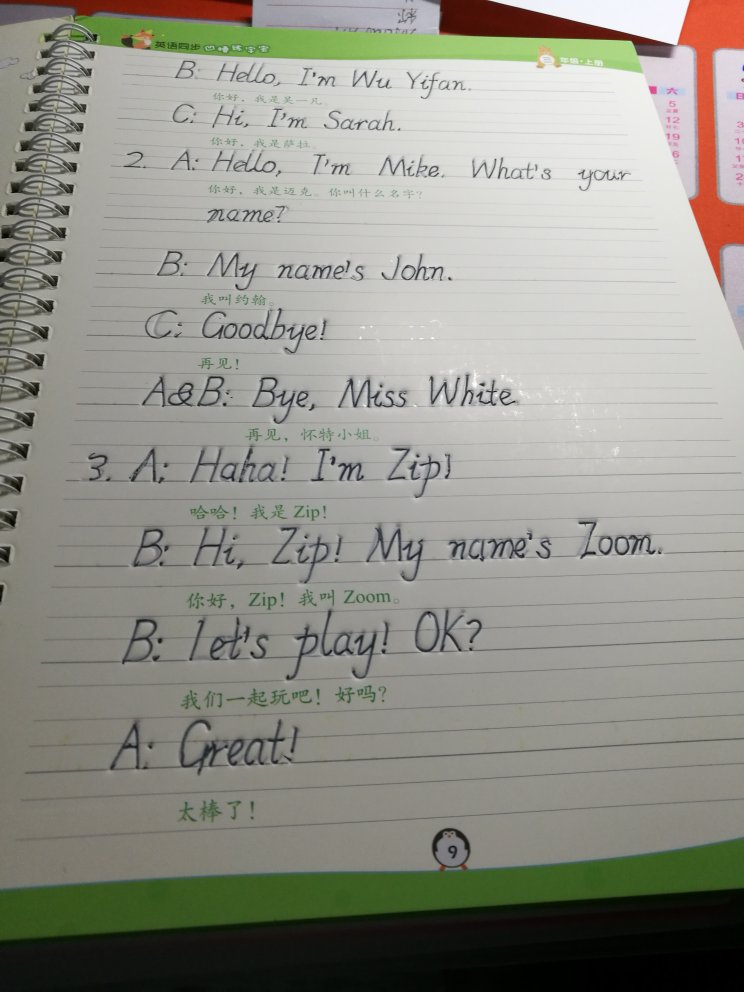 英语同步凹槽练字宝
三年级·上册
B: Hello, I'm Wu Yifan.
你好，我是吴一凡。
C: Hi, I'm Sarah.
你好，我是萨拉。
2. A: Hello, I'm Mike. What's your
你好，我是迈克。你叫什么名字？
name?
B: My name's John.
我叫约翰。
C: Goodbye!
再见！
A&B: Bye, Miss White.
再见，怀特小姐。
3. A: Haha! I'm Zip!
哈哈！我是 Zip!
B: Hi, Zip! My name's Zoom.
你好，Zip! 我叫 Zoom。
B: let's play! OK?
我们一起玩吧！好吗？
A: Great!
太棒了！
9
六
5
12
19
日